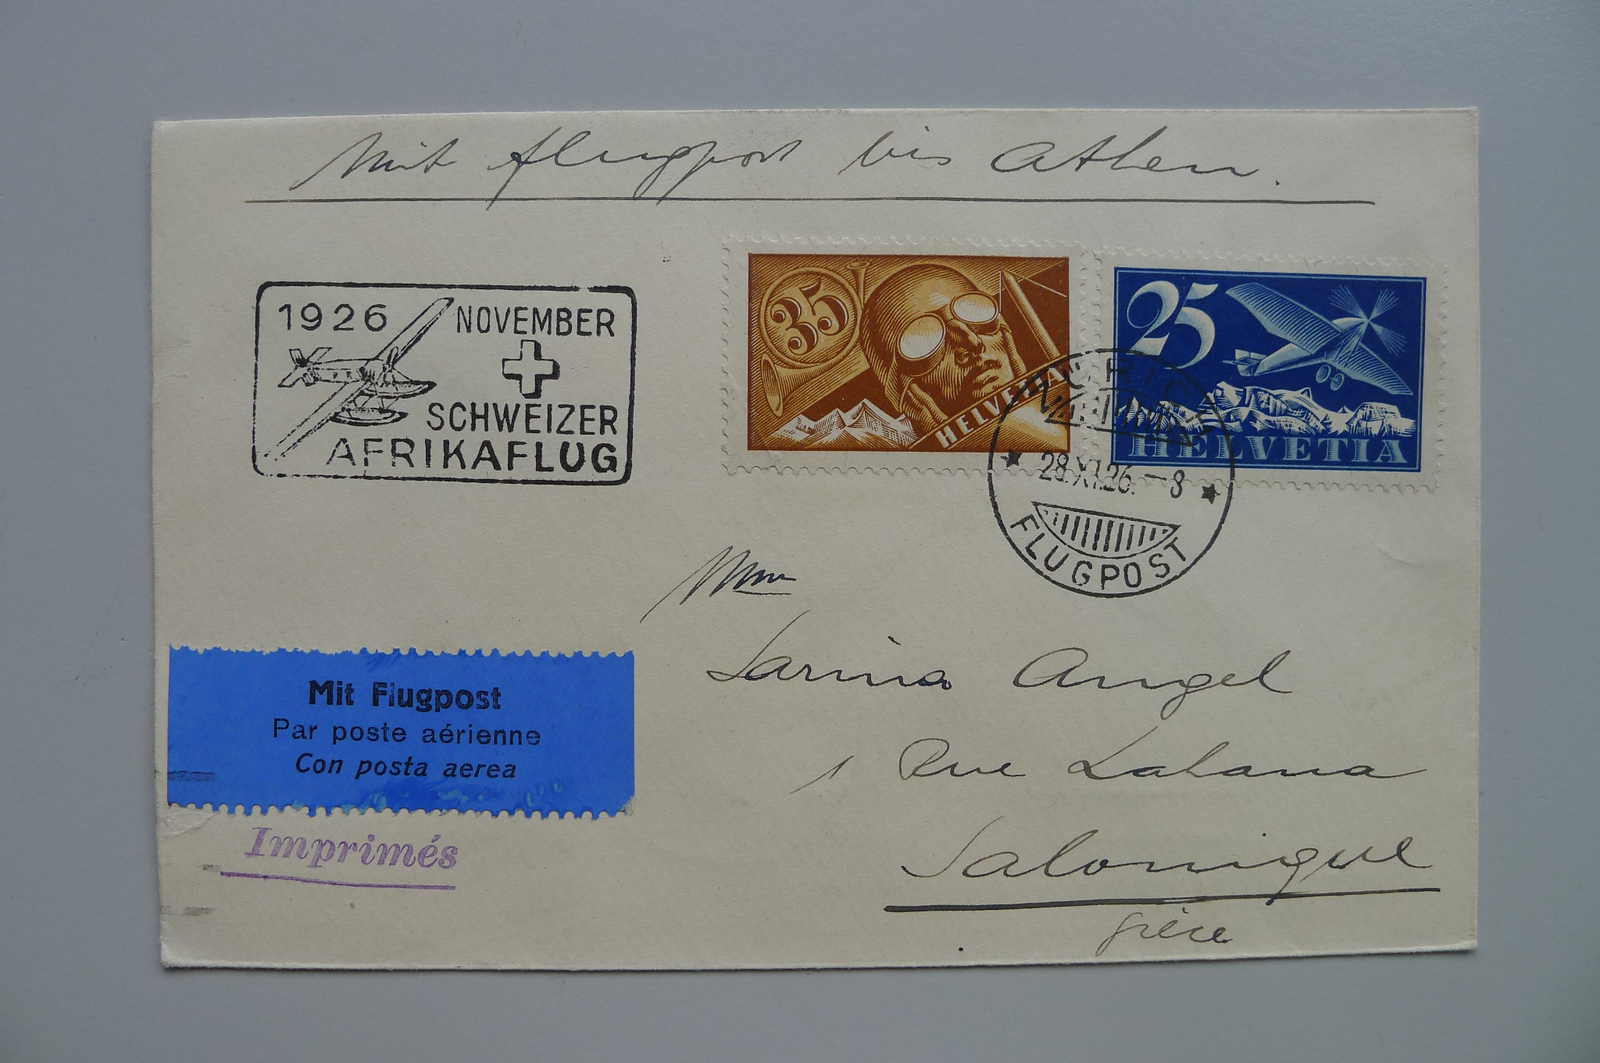 Mit Flugpost bis Athen.
1926 NOVEMBER
SCHWEIZER
AFRIKAFLUG
35
HELVETIA
25
HELVETIA
ZÜRICH
28.XI.26.–8
FLUGPOST
Mme
Sarina Angel
1 Rue Lahana
Salonique
Grèce
Mit Flugpost
Par poste aérienne
Con posta aerea
Imprimés